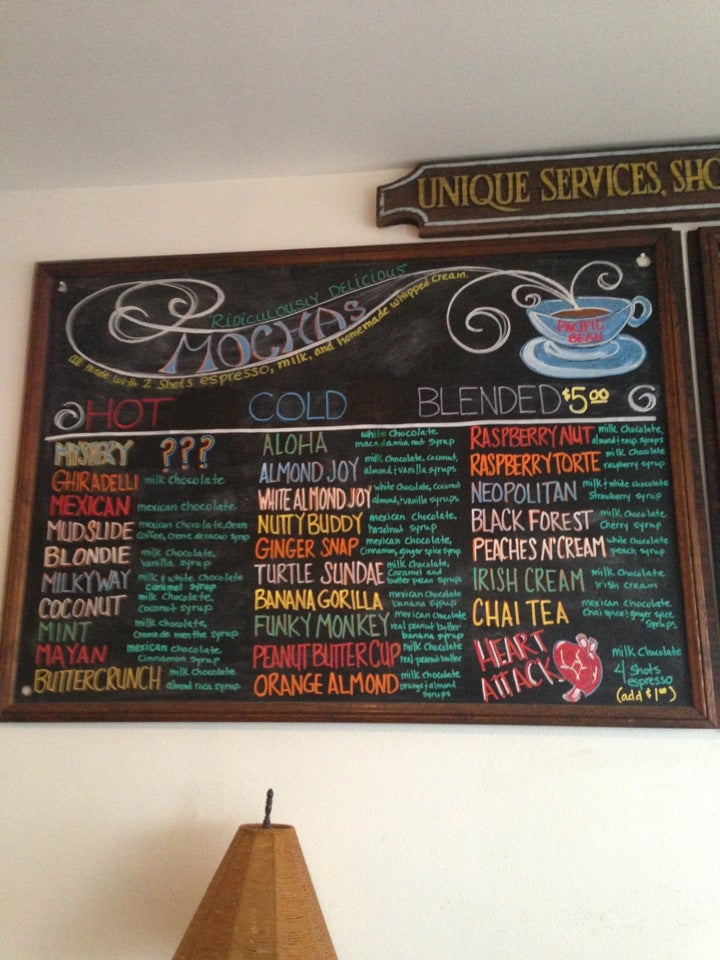 UNIQUE SERVICES, SHO
RIDICULOUSLY DELICIOUS
MOCHAS
all made with 2 shots espresso, milk, and homemade whipped cream.
PACIFIC BEAN
HOT COLD BLENDED $5.00
MYSTERY ???
GHIRADELLI milk chocolate
MEXICAN mexican chocolate
MUDSLIDE mexican chocolate, cream
coffee, creme de cacao syrup
BLONDIE milk chocolate,
vanilla syrup
MILKYWAY milk & white chocolate
caramel syrup
COCONUT milk chocolate,
coconut syrup
MINT milk chocolate,
creme de menthe syrup
MAYAN mexican chocolate
cinnamon syrup
BUTTERCRUNCH milk chocolate
almond roca syrup
ALOHA white chocolate
macadamia nut syrup
ALMOND JOY milk chocolate, coconut,
almond & vanilla syrups
WHITE ALMOND JOY white chocolate, coconut
almond & vanilla syrups
NUTTY BUDDY mexican chocolate,
hazelnut syrup
GINGER SNAP mexican chocolate,
cinnamon, ginger spice syrup
TURTLE SUNDAE milk chocolate,
caramel and
butter pecan syrups
BANANA GORILLA mexican chocolate
banana syrup
FUNKY MONKEY mexican chocolate
real peanut butter
banana syrup
PEANUT BUTTER CUP milk chocolate
real peanut butter
ORANGE ALMOND milk chocolate
orange & almond
syrups
RASPBERRY NUT milk chocolate,
almond & rasp syrups
RASPBERRY TORTE milk chocolate
raspberry syrup
NEOPOLITAN milk & white chocolate
strawberry syrup
BLACK FOREST milk chocolate
cherry syrup
PEACHES N' CREAM white chocolate
peach syrup
IRISH CREAM milk chocolate
irish cream
CHAI TEA mexican chocolate
chai spice & ginger spice
syrups
HEART
ATTACK
milk chocolate
4 shots
espresso
(add $1.00)